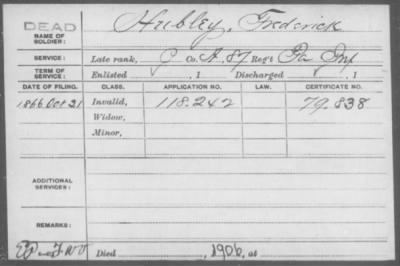 DEAD
NAME OF SOLDIER: Hubley, Frederick
SERVICE: Late rank, Co. A, 87 Reg't Pa Inf
TERM OF SERVICE: Enlisted , 1 Discharged , 1
DATE OF FILING. CLASS. APPLICATION NO. LAW. CERTIFICATE NO.
1866 Oct 31 Invalid, 118.242 79.838
Widow,
Minor,
ADDITIONAL SERVICES:
REMARKS:
Died , 1906, at